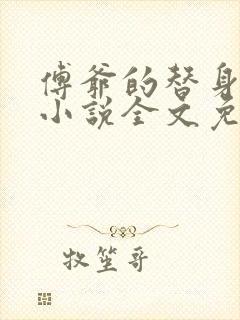 傅爷的替身
小说全文免
牧笙哥